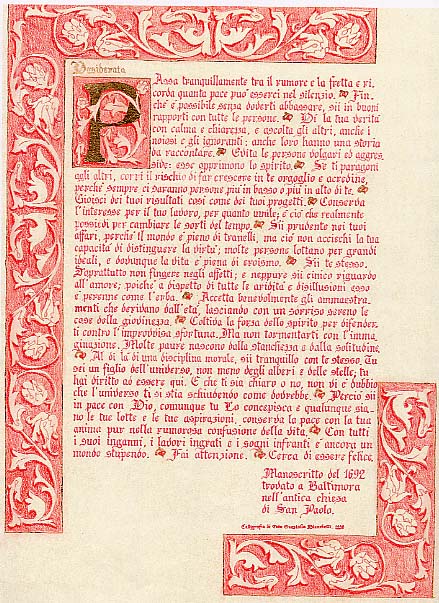 Desiderata
Passa tranquillamente tra il rumore e la fretta e ri,
corda quanta pace può esserci nel silenzio. Fin,
ché è possibile senza doverti abbassare, sii in buoni
rapporti con tutte le persone. Di la tua verità
con calma e chiarezza, e ascolta gli altri, anche i
noiosi e gli ignoranti; anche loro hanno una storia
da raccontare. Evita le persone volgari ed aggres,
sive; esse opprimono lo spirito. Se ti paragoni
agli altri, corri il rischio di far crescere in te orgoglio e acredine,
perché sempre ci saranno persone più in basso o più in alto di te.
Gioisci dei tuoi risultati così come dei tuoi progetti. Conserva
l'interesse per il tuo lavoro, per quanto umile; è ciò che realmente
possiedi per cambiare le sorti del tempo. Sii prudente nei tuoi
affari, perché il mondo è pieno di tranelli, ma ciò non accischi la tua
capacità di distinguere la virtù; molte persone lottano per grandi
ideali, e dovunque la vita è piena di eroismo. Sii te stesso.
Soprattutto non fingere negli affetti; e neppure sii cinico riguardo
all'amore; poiché a dispetto di tutte le aridità e disillusioni esso
è perenne come l'erba. Accetta benevolmente gli ammaestra,
menti che derivano dall'età, lasciando con un sorriso sereno le
cose della giovinezza. Coltiva la forza dello spirito per difender,
ti contro l'improvvisa sfortuna. Ma non tormentarti con l'imma,
ginazione. Molte paure nascono dalla stanchezza e dalla solitudine.
Al di là di una disciplina morale, sii tranquillo con te stesso. Tu
sei un figlio dell'universo, non meno degli alberi e delle stelle; tu
hai diritto ad essere qui. E che ti sia chiaro o no, non vi è dubbio
che l'universo ti si stia schiudendo come dovrebbe. Perciò sii
in pace con Dio, comunque tu Lo concepisca e qualunque sia,
no le tue lotte e le tue aspirazioni, conserva la pace con la tua
anima pur nella rumorosa confusione della vita. Con tutti
i suoi inganni, i lavori ingrati e i sogni infranti è ancora un
mondo stupendo. Fai attenzione. Cerca di essere felice.
Manoscritto del 1692
trovato a Baltimora
nell'antica chiesa
di San Paolo.
Calligrafia di